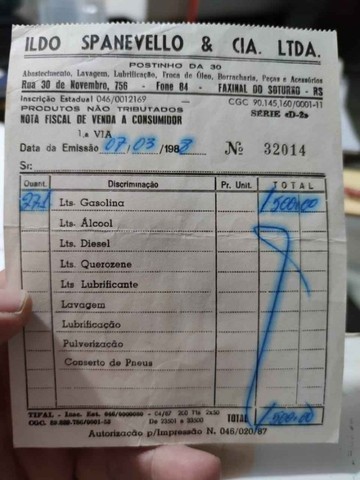 ILDO SPANEVELLO & CIA. LTDA.
POSTINHO DA 30
Abastecimento, Lavagem, Lubrificação, Troca de Óleo, Borracharia, Peças e Acessórios
Rua 30 de Novembro, 756 - Fone 84 - FAXINAL DO SOTURNO - RS
Inscrição Estadual 046/0012169 CGC 90.145,160/0001-11
PRODUTOS NÃO TRIBUTADOS
NOTA FISCAL DE VENDA A CONSUMIDOR SÉRIE «D-2»
1.a VIA
Data da Emissão 08, 03 / 1988 Nº 32014
Sr:
Quant. Discriminação Pr. Unit. TOTAL
37L Lts. Gasolina 1.500,00
Lts. Álcool
Lts. Diesel
Lts. Querozene
Lts Lubrificante
Lavagem
Lubrificação
Pulverização
Conserto de Pneus
TIPAL - Insc. Est. 046/ - 04/87 300 TIS 2x50 TOTAL 1.500,00
CGC. De 23501 a 38500
Autorização p/Impressão N. 046/020/87